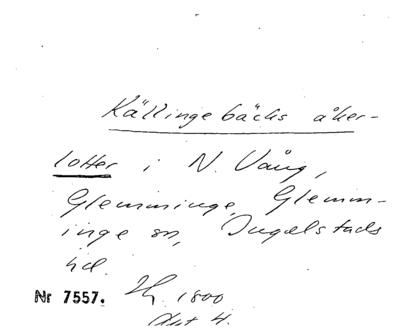 Källingebäcks åker-
lotter i N. Vång,
Glemminge, Glemm-
inge sn, Ingelstads
hd.
Nr 7557. 1800
Akt 4.